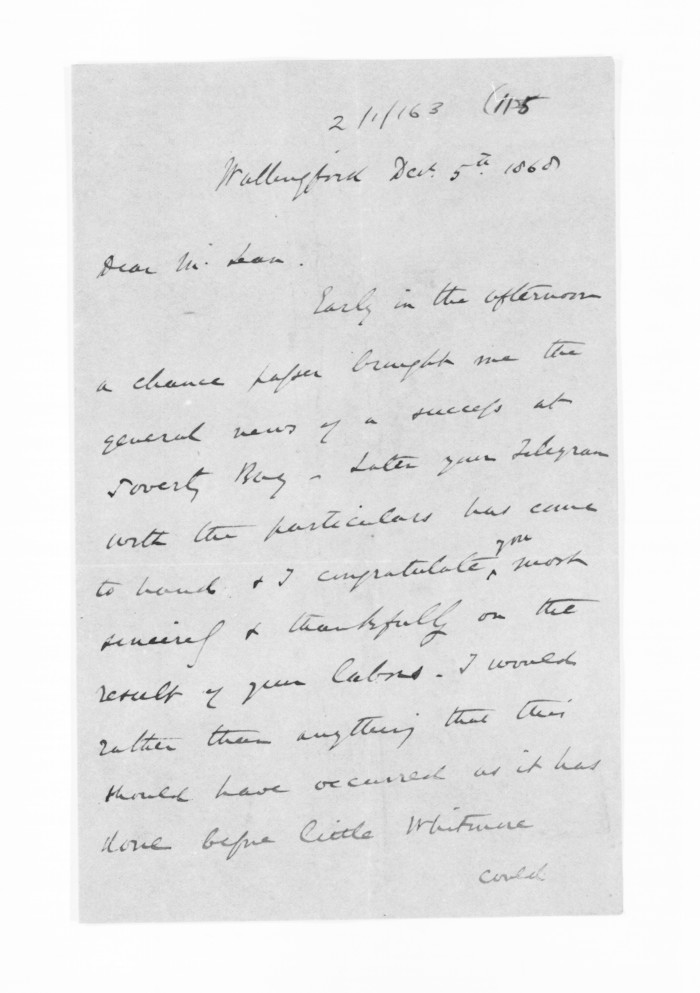 2/1/163 (115
Wallingford Decr. 5th. 1868
Dear McLean.
Early in the afternoon
a chance paper brought me the
general news of a success at
Poverty Bay - Later your Telegram
with the particulars has come
to hand & I congratulate you most
sincerely & thankfully on the
result of your labors - I would
rather than anything that this
should have occurred as it has
done before little Whitmore
could